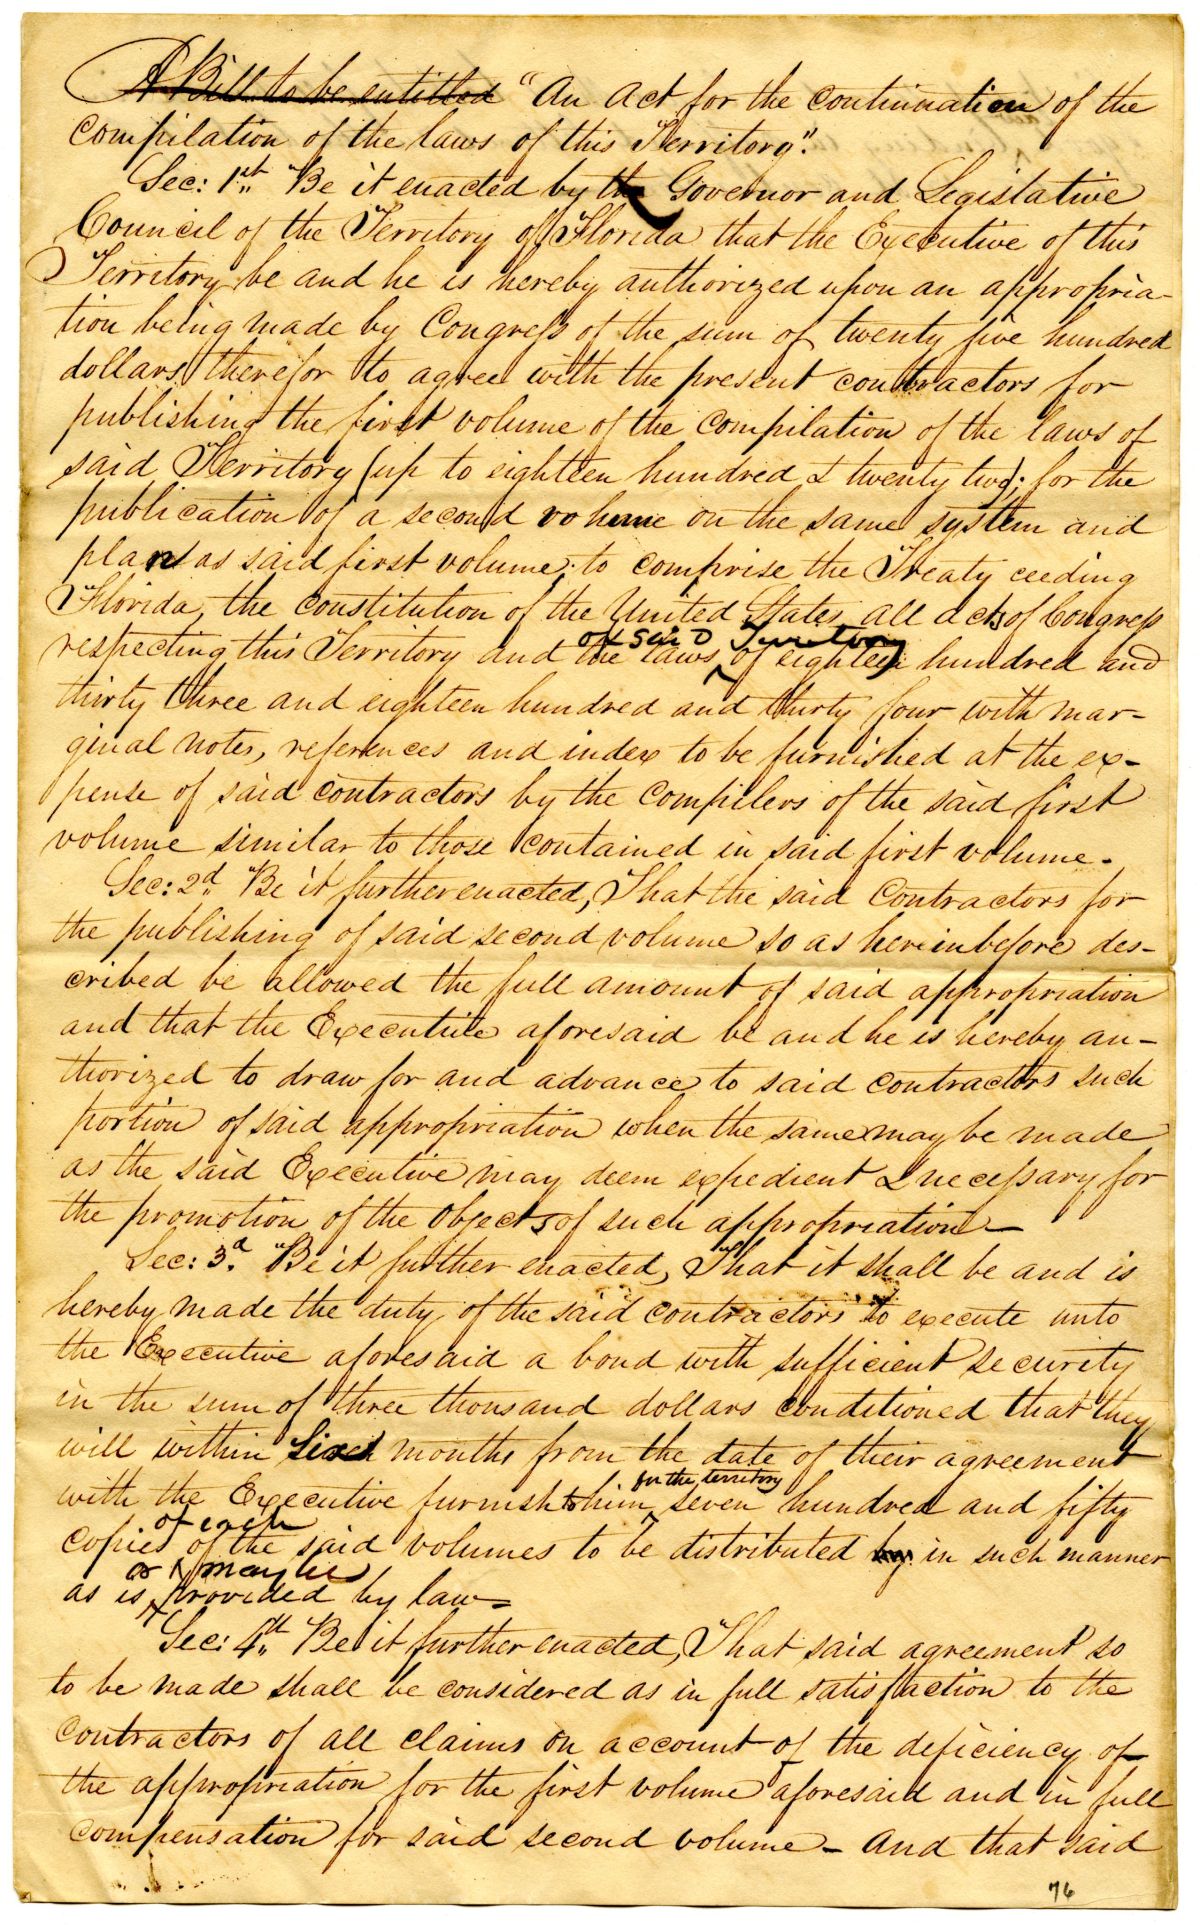 A Bill to be entitled "An Act for the continuation of the
compilation of the laws of this Territory."
Sec: 1st. Be it enacted by the Governor and Legislative
Council of the Territory of Florida that the Executive of this
Territory be and he is hereby authorized upon an appropria-
tion being made by Congress of the sum of twenty five hundred
dollars therefor to agree with the present contractors for
publishing the first volume of the compilation of the laws of
said Territory (up to eighteen hundred & twenty two); for the
publication of a second volume on the same system and
plan as said first volume; to comprise the Treaty ceeding
Florida, the constitution of the United States, all acts of Congress
of said Territory
respecting this Territory and the laws ^ of eighteen hundred and
thirty three and eighteen hundred and thirty four with mar-
ginal notes, references and index to be furnished at the ex-
pense of said contractors by the compilers of the said first
volume similar to those contained in said first volume.
Sec: 2d. Be it further enacted, That the said Contractors for
the publishing of said second volume so as hereinbefore des-
cribed be allowed the full amount of said appropriation
and that the Executive aforesaid be and he is hereby au-
thorized to draw for and advance to said contractors such
portion of said appropriation when the same may be made
as the said Executive may deem expedient & necessary for
the promotion of the objects of such appropriation—
Sec: 3d. Be it further enacted, That it shall be and is
hereby made the duty of the said contractors to execute unto
the Executive aforesaid a bond with sufficient security
in the sum of three thousand dollars conditioned that they
will within six months from the date of their agreement
for the territory
with the Executive furnish to him ^ seven hundred and fifty
of each
copies of the said volumes to be distributed by in such manner
or may be
as is ^ provided by law—
Sec: 4th. Be it further enacted, That said agreement so
to be made shall be considered as in full satisfaction to the
contractors of all claims on account of the deficiency of
the appropriation for the first volume aforesaid and in full
compensation for said second volume – And that said
76